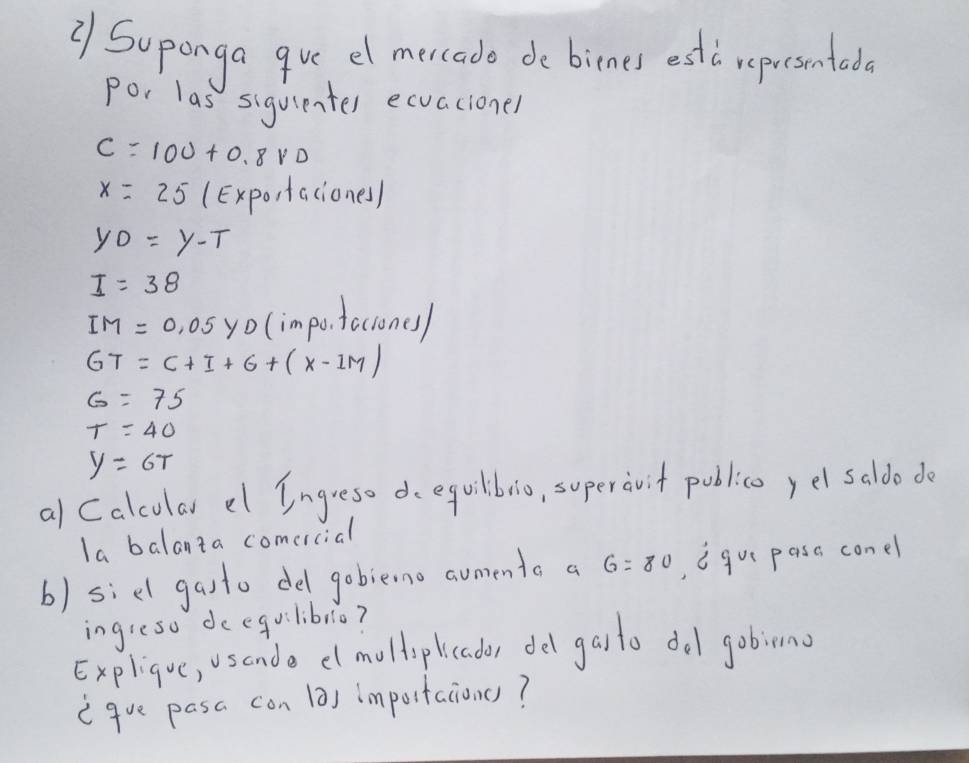 2) Suponga que el mercado de bienes está representada
por las siguientes ecuaciones
C = 100 + 0.8 YD
X = 25 (Exportaciones)
YD = Y-T
I = 38
IM = 0,05 YD (importaciones)
GT = C + I + G + (X - IM)
G = 75
T = 40
Y = GT
a) Calcular el Ingreso de equilibrio, superávit publico y el saldo de
la balanza comercial
b) si el gasto del gobierno aumenta a G = 80, ¿que pasa con el
ingreso de equilibrio?
Explique, usando el multiplicador del gasto del gobierno
¿que pasa con las importaciones?